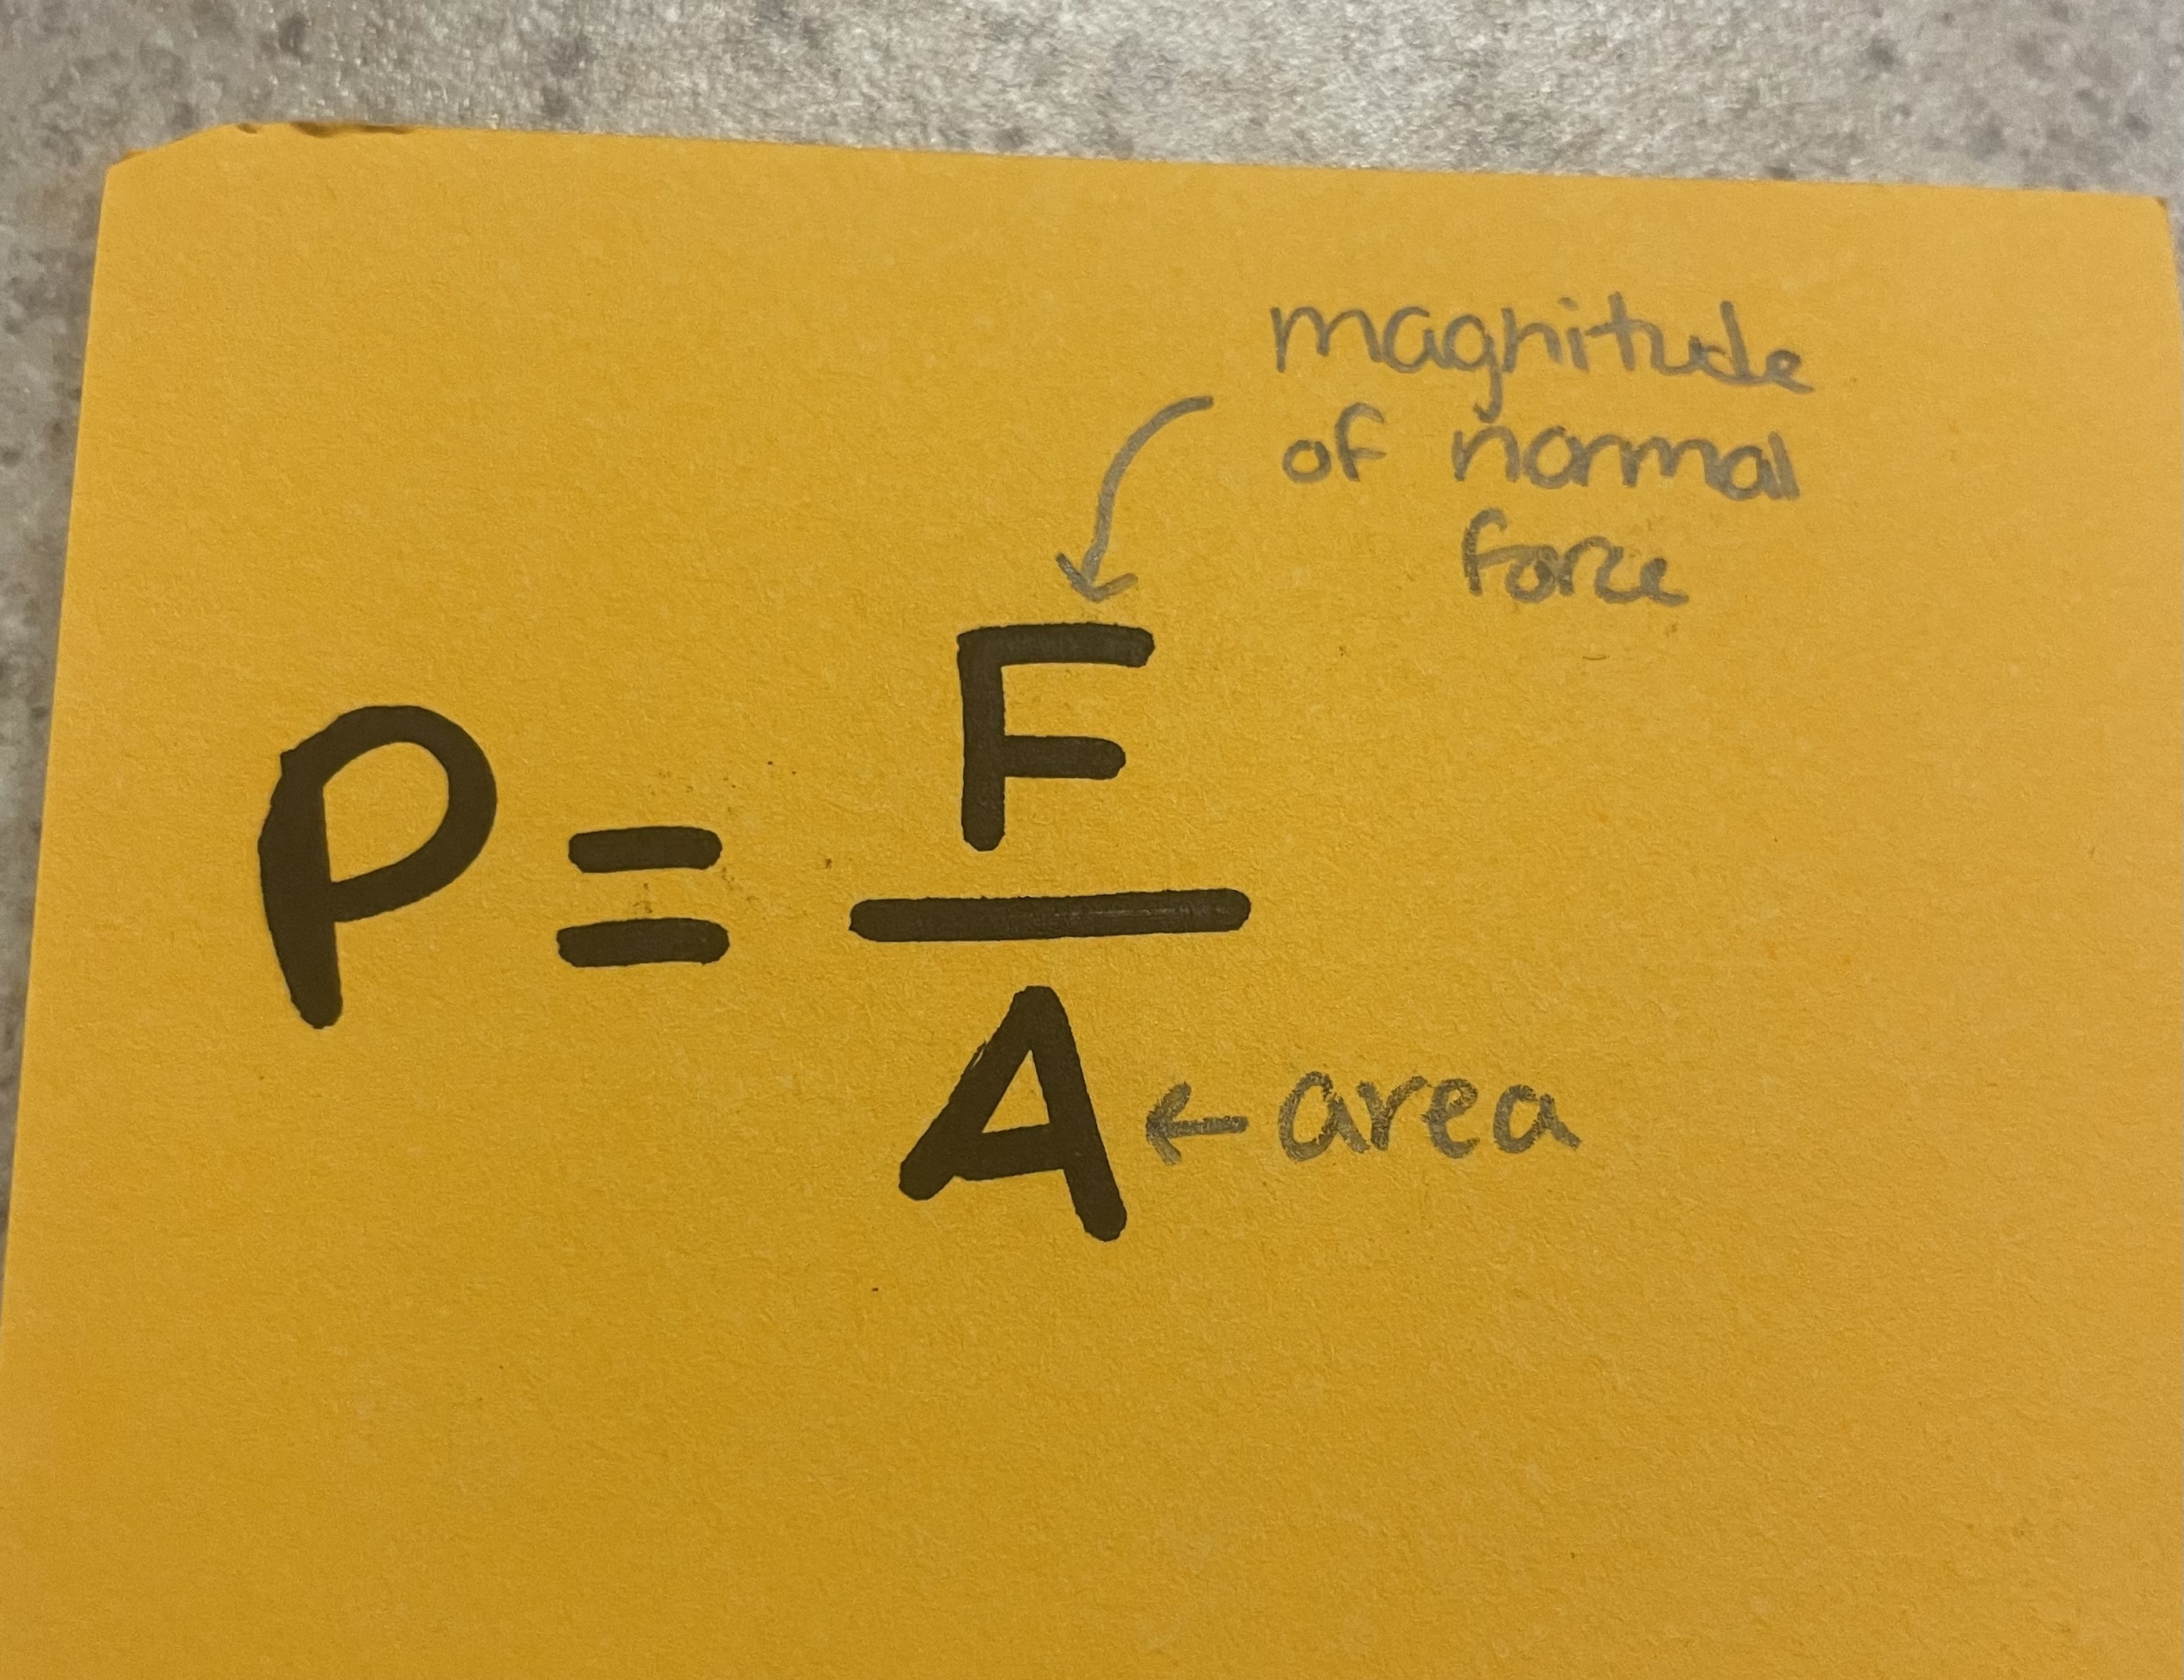 magnitude
of normal
force
P = F
A ← area